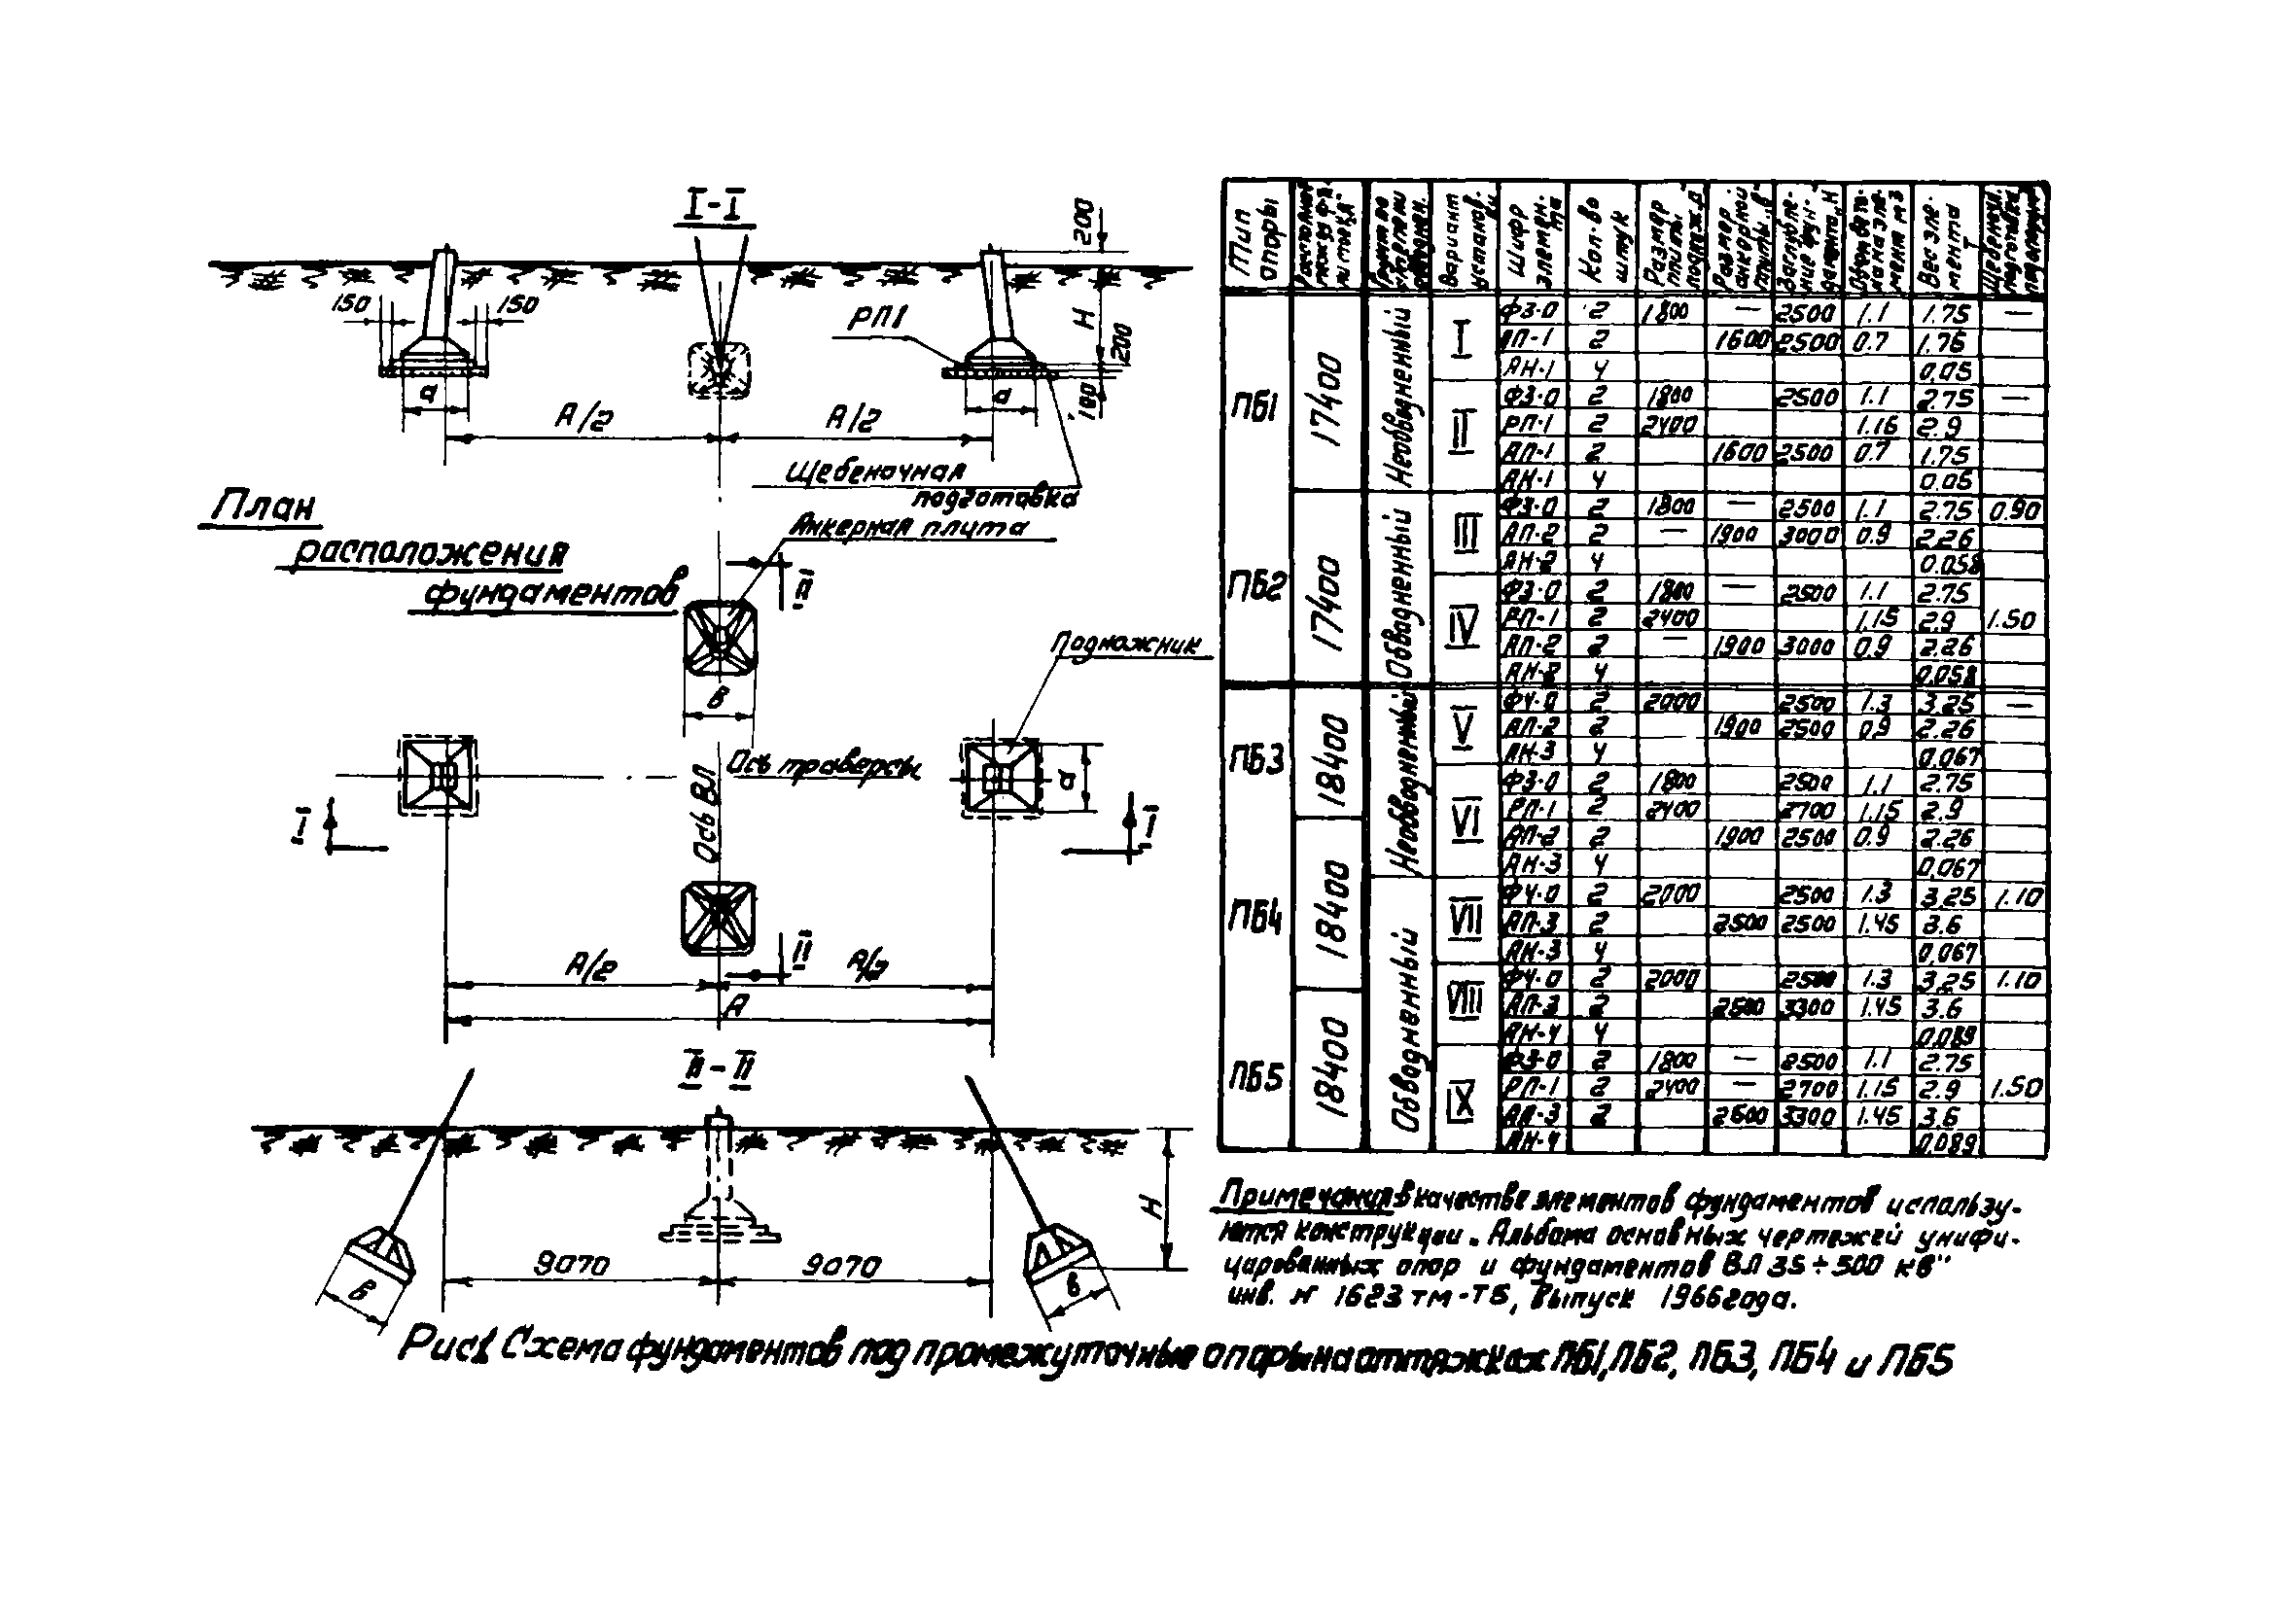 I-I
200
150
150
РП1
H
200
100
а
а
А/2
А/2
Щебеночная
подготовка
План
расположения
фундаментов
Анкерная плита
II
Подножник
В
Ось траверсы
Ось ВЛ
а
I
I
II
А/2
А/2
А
II-II
H
9070
9070
В
В
Тип опоры
Вариант установ.
Шифр элемен-та
Кол-во штук
Размер плиты
Размер анкорной плиты „в"
Вес эле-мента Т
ПБ1 17400 Необводненный
I Ф3-0 2 1800 — 2500 1.1 1.75 —
АП-1 2 1600 2500 0.7 1.76
АН-1 4 0,05
II Ф3-0 2 1800 2500 1.1 2.75 —
РП-1 2 2400 1.16 2.9
АП-1 2 1600 2500 0.7 1.75
АН-1 4 0.05
ПБ2 17400 Обводненный
III Ф3-0 2 1800 — 2500 1.1 2.75 0.90
АП-2 2 — 1900 3000 0.9 2.26
АН-2 4 0.058
IV Ф3-0 2 1800 — 2500 1.1 2.75
РП-1 2 2400 1.15 2.9 1.50
АП-2 2 — 1900 3000 0.9 2.26
АН-2 4 0,058
ПБ3 18400 Необводненный
V Ф4-0 2 2000 2500 1.3 3.25 —
АП-2 2 1900 2500 0,9 2.26
АН-3 4 0,067
VI Ф3-0 2 1800 2500 1.1 2.75
РП-1 2 2400 2700 1.15 2.9
АП-2 2 1900 2500 0.9 2.26
АН-3 4 0,067
ПБ4 18400 Обводненный
VII Ф4-0 2 2000 2500 1.3 3,25 1.10
АП-3 2 2500 2500 1.45 3.6
АН-3 4 0,067
VIII Ф4-0 2 2000 2500 1.3 3,25 1.10
АП-3 2 2500 3300 1.45 3.6
АН-4 4 0,089
ПБ5 18400
IX Ф3-0 2 1800 — 2500 1.1 2.75
РП-1 2 2400 — 2700 1.15 2.9 1.50
АП-3 2 2600 3300 1.45 3.6
АН-4 0,089
Примечания: В качестве элементов фундаментов использу-
ются конструкции „Альбома основных чертежей унифи-
цированных опор и фундаментов ВЛ 35÷500 кв"
инв. № 1623 тм-Т5, Выпуск 1966 года.
Рис1 Схема фундаментов под промежуточные опоры на оттяжках ПБ1, ПБ2, ПБ3, ПБ4 и ПБ5